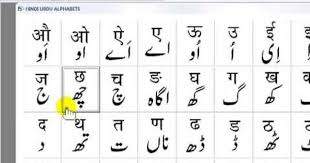 HINDI URDU ALPHABETS
औ ओ ऐ ए ऊ उ ई
اَو او اَے اے اُو اُ اِی
ज छ च ङ घ ग ख
ج چھ چ اگاہ گھ گ کھ
द थ त ण ढ ड ठ
د تھ ت ناں ڈھ ڈ ٹھ